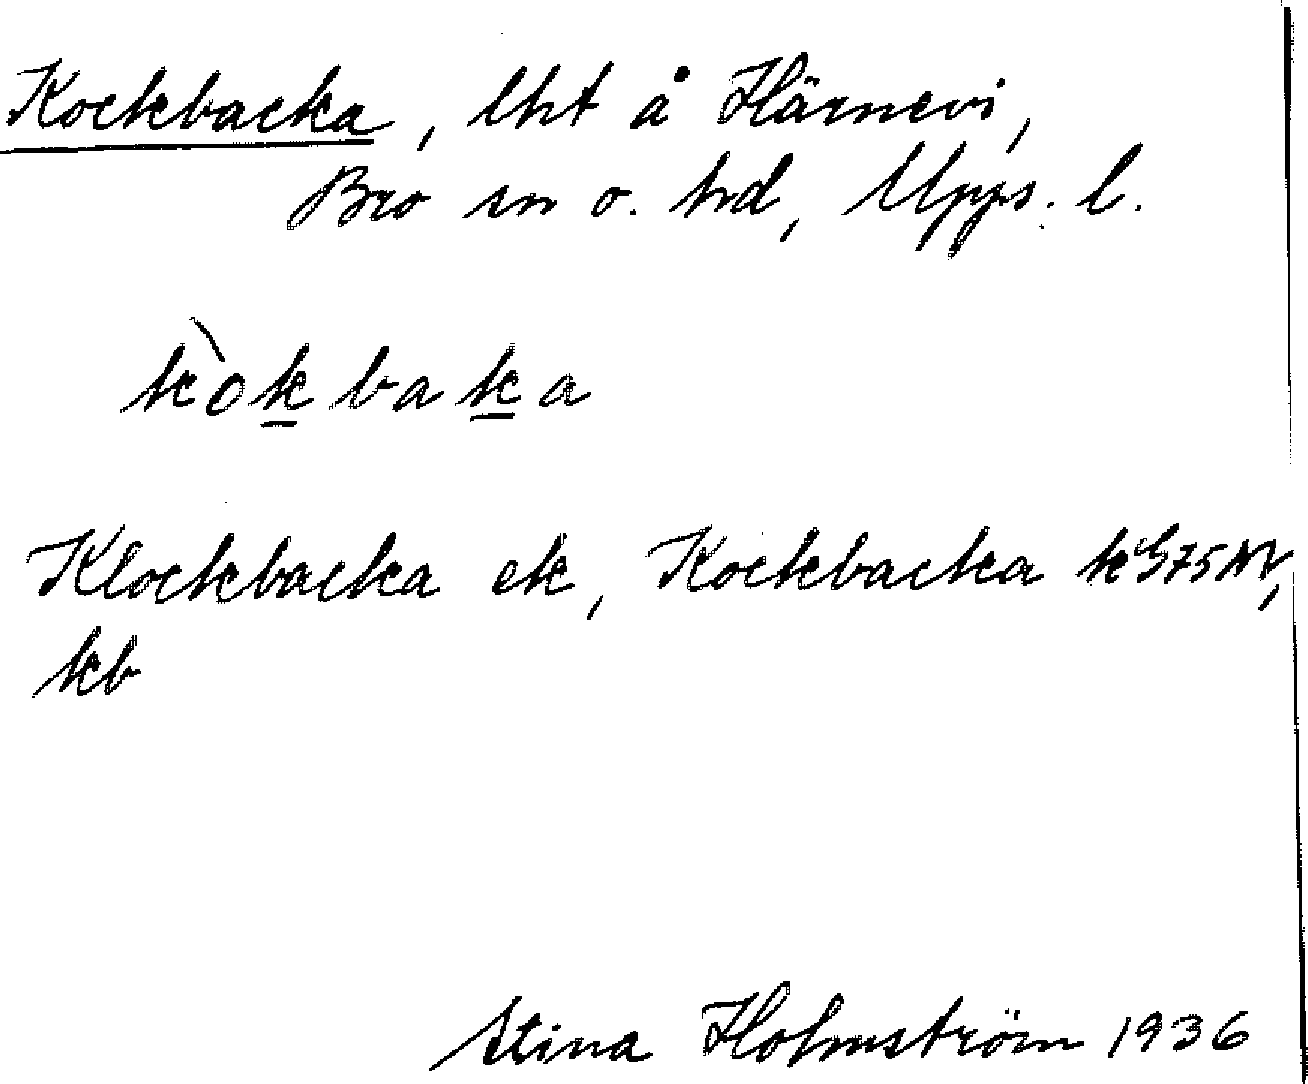 Kockbacka, lht å Härnevi,
Bro sn o. hd, Upps. l.
kòkbaka
Klockbacka ek, Kockbacka k
kb
Stina Holmström 1936